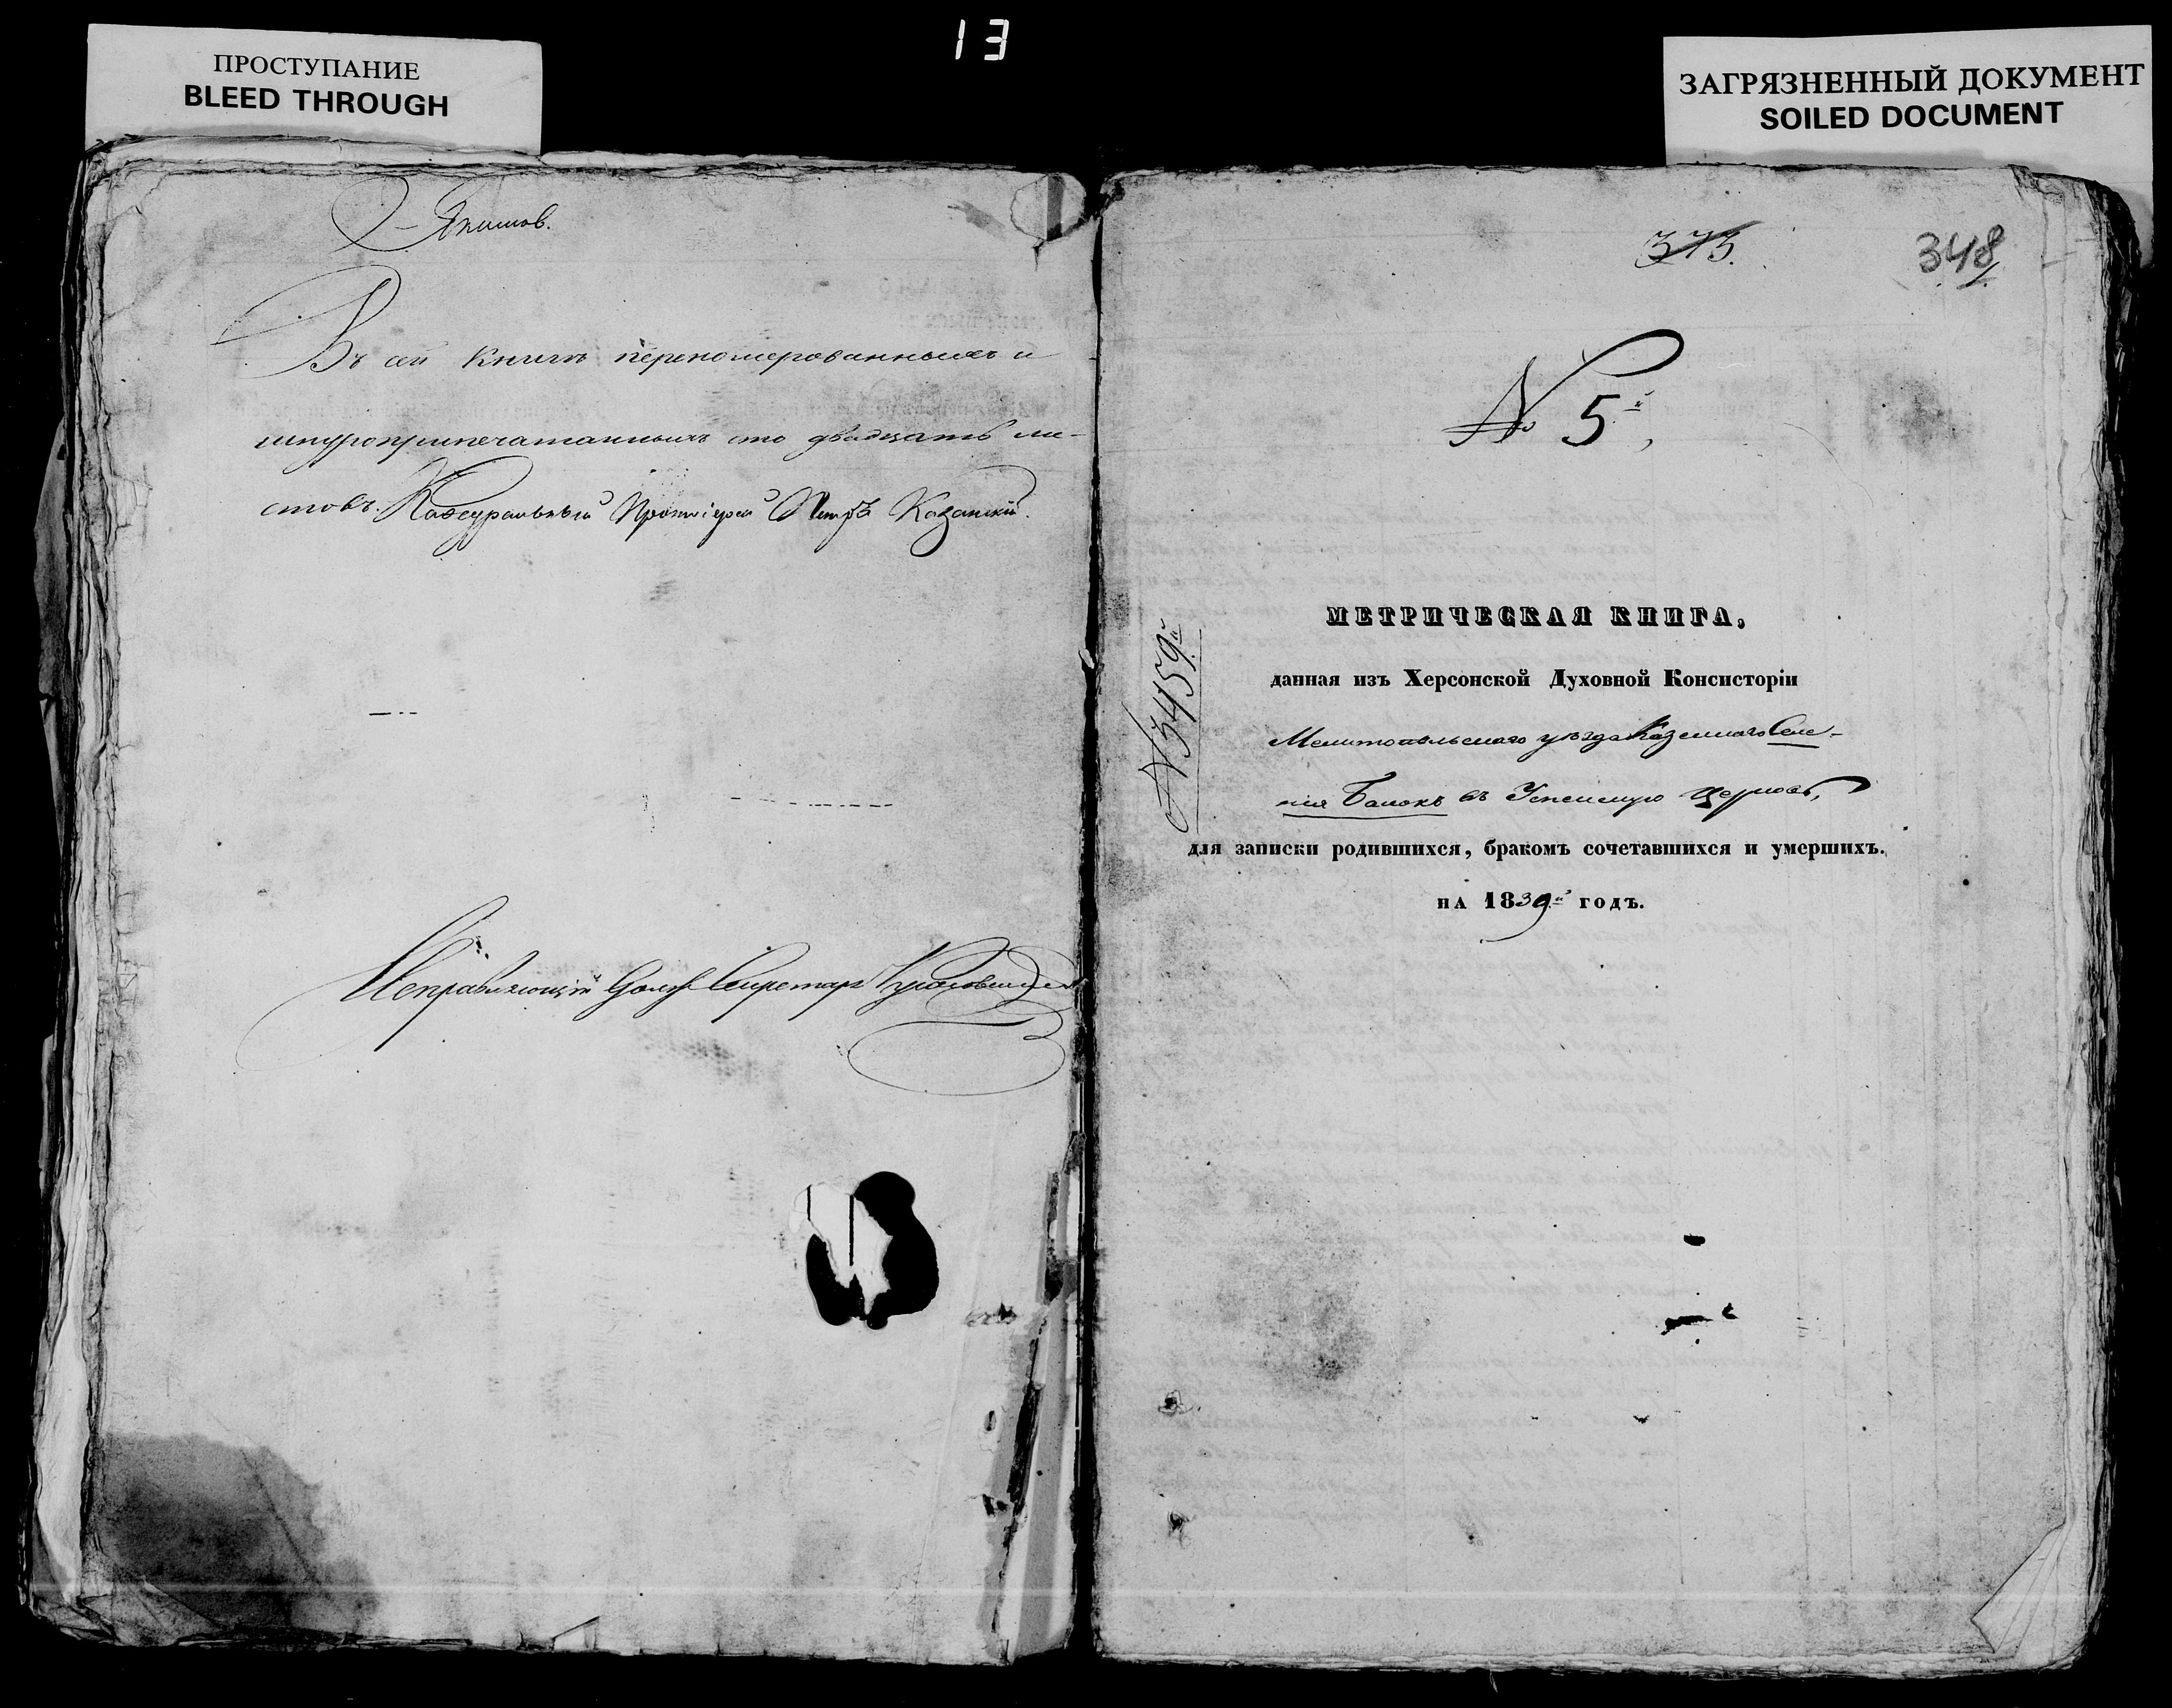 13
ПРОСТУПАНИЕ
BLEED THROUGH
ЗАГРЯЗНЕННЫЙ ДОКУМЕНТ
SOILED DOCUMENT
Въ сей книгѣ перенomерованныхъ и
шнуроприпечатанныхъ сто двадцать ли-
стовъ. Кафедральный Протоіерей Петръ Казанскій.
Исправляющій Должн Секретаря
373.
348
№ 5й,
№ 3459й
МЕТРИЧЕСКАЯ КНИГА,
данная изъ Херсонской Духовной Консисторіи
Мелитопольскаго уѣзда Казеннаго Селе-
нія Балокъ въ Успенскую Церковь,
для записки родившихся, бракомъ сочетавшихся и умершихъ.
НА 1839й ГОДЪ.